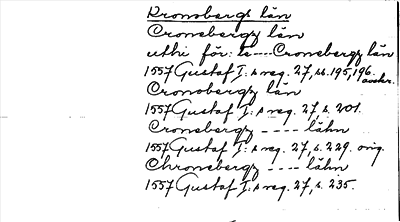 Kronobergs län
Cronebergz län
uthi för: te---Cronebergz län
1557 Gustaf I:s reg. 27, ss. 195, 196. avskr.
Cronobergz län
1557 Gustaf I:s reg. 27, s. 201.
Cronebergz ---- lähn
1557 Gustaf I:s reg. 27, s. 229. orig.
Chronebergz ---- lähn
1557 Gustaf I:s reg. 27, s. 235.